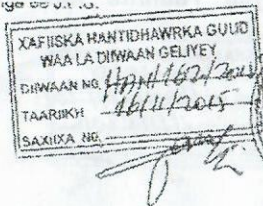 XAFIISKA HANTIDHAWRKA GUUD
WAA LA DIIWAAN GELIYEY
DIIWAAN NO. HDH/162/2015
TAARIIKH 16/11/2015
SAXIIXA NO.